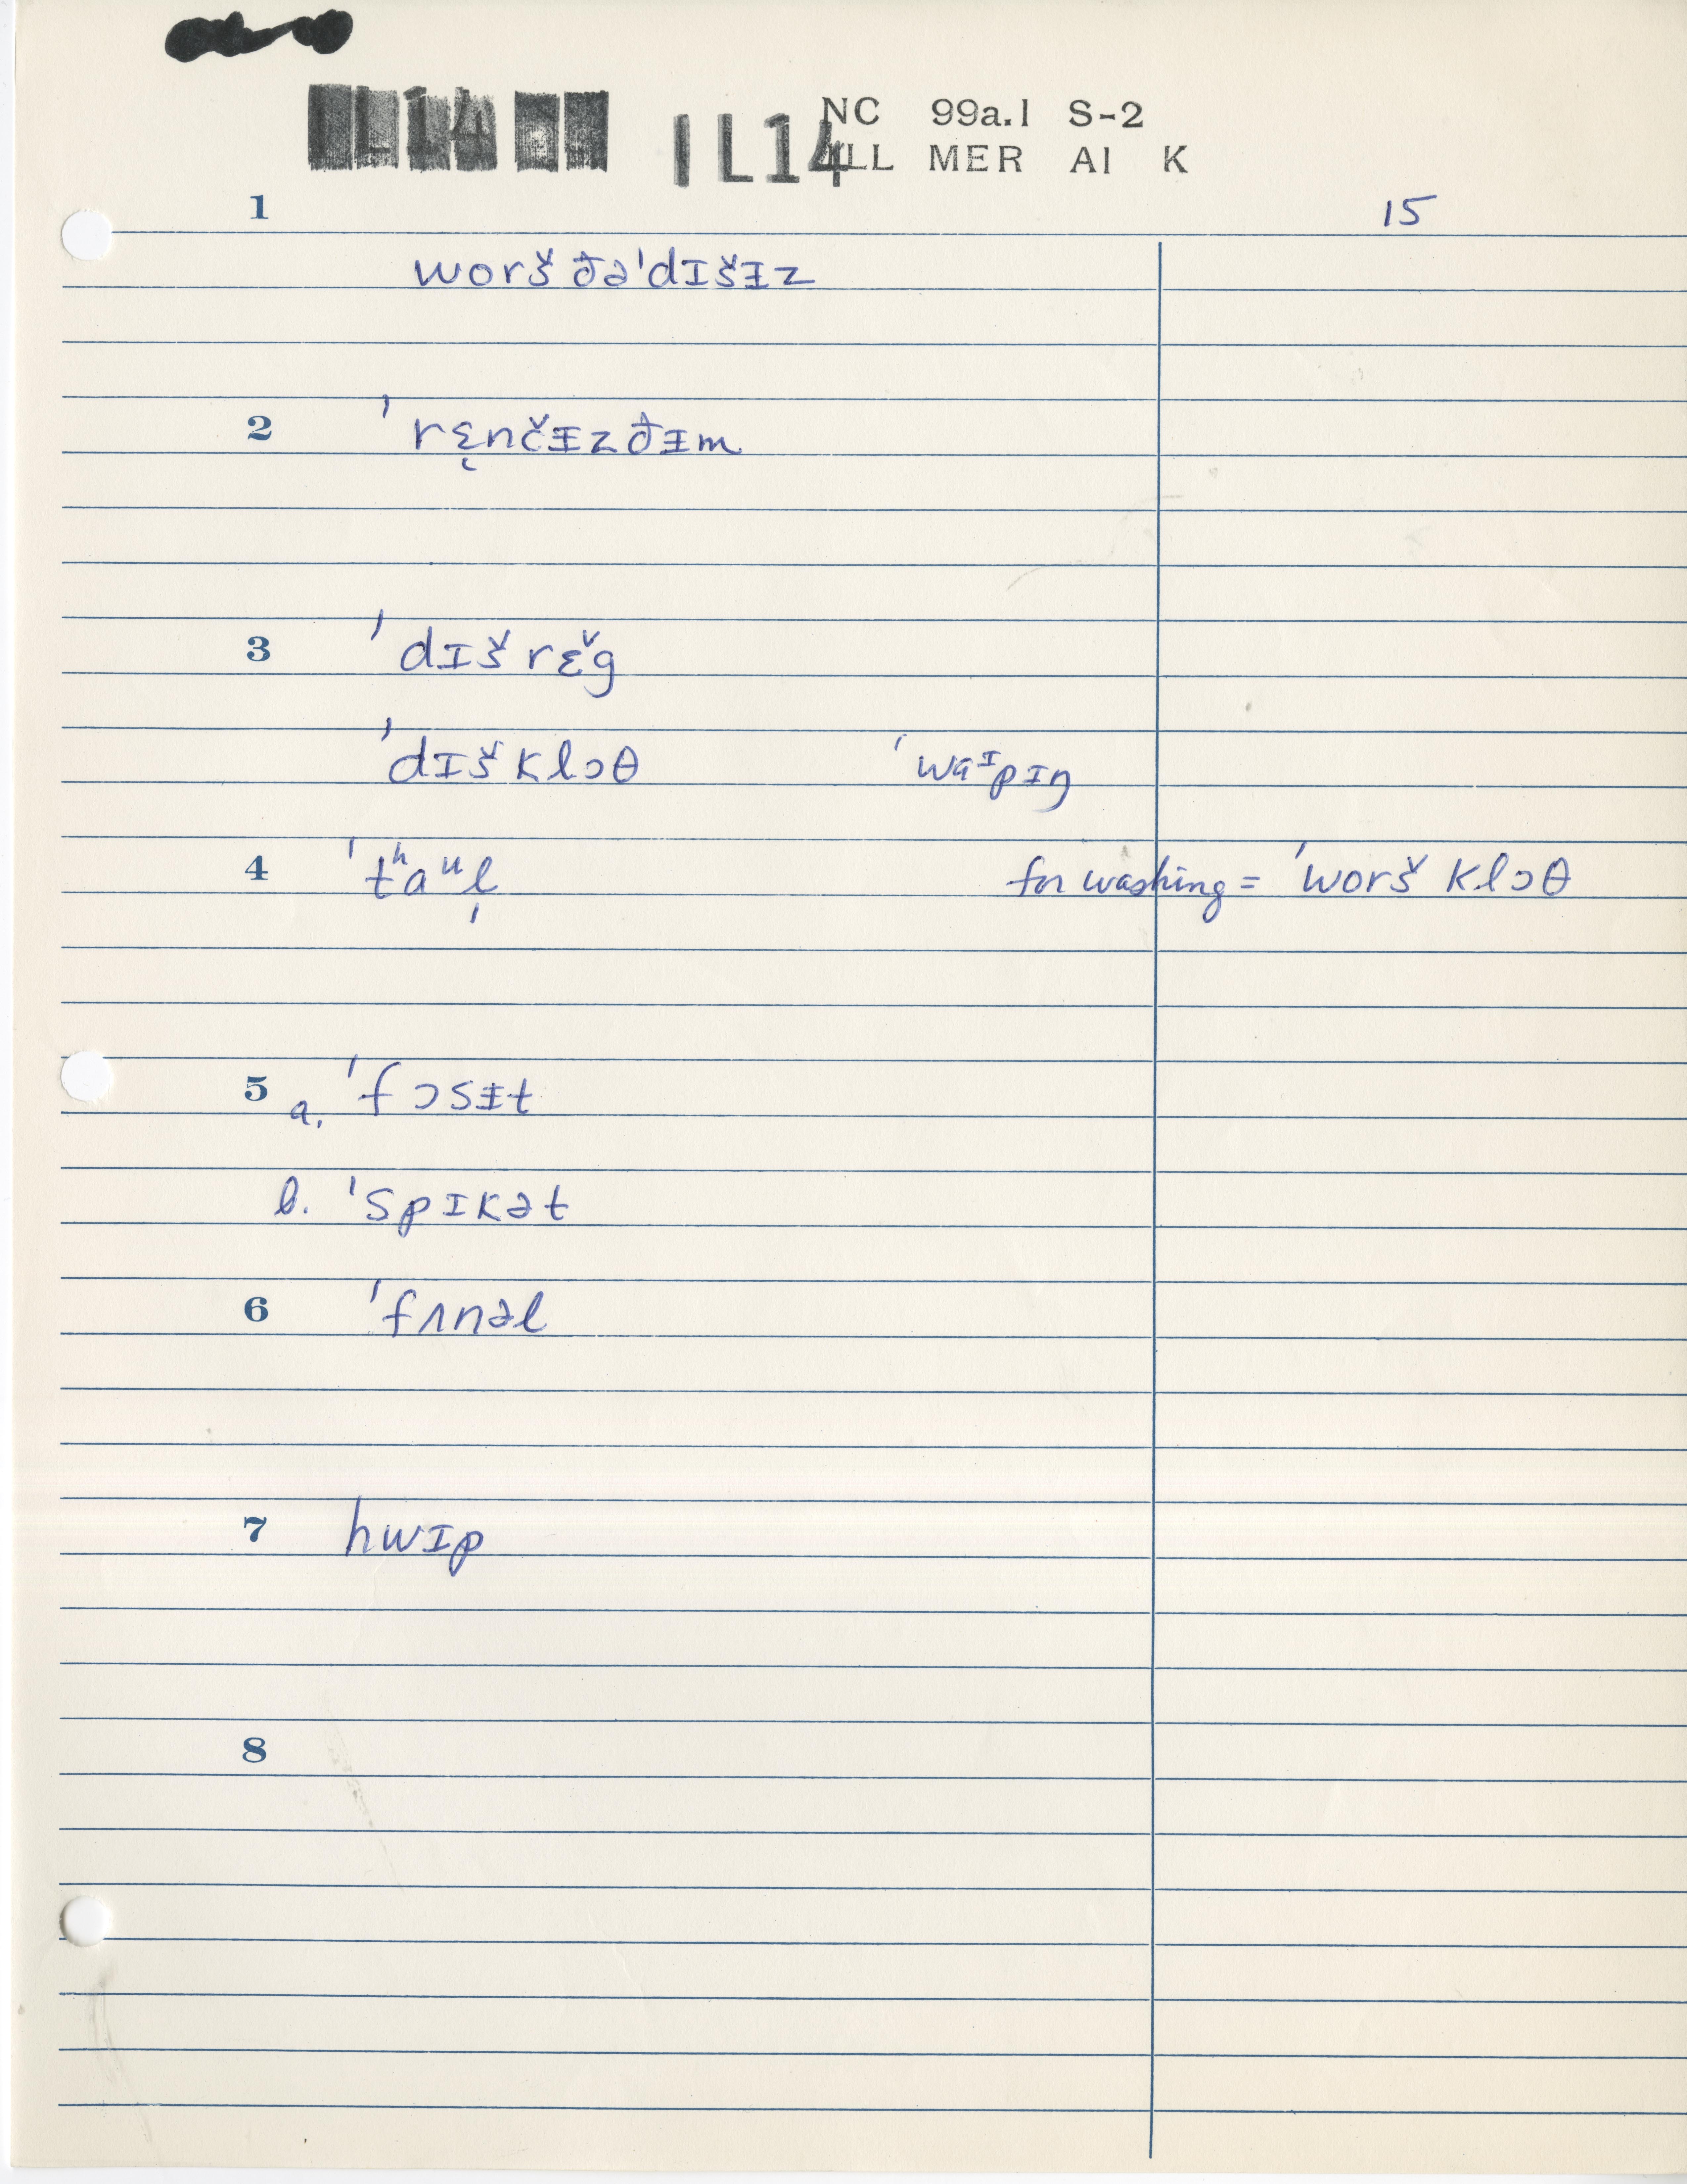 NC 99a.1 S-2
IL14 ALL MER AI K
1 15
worš ðə'dɪšɪ̵z
2 'rɛ̨nčɪ̵z ðɪ̵m
3 'dɪš rɛ̌g
'dɪš klɔθ 'waᶦpɪŋ
4 'tʰaᵘl̩ for washing = 'worš klɔθ
5 a. 'fɔsɪ̵t
b. 'spɪkət
6 'fʌnəl
7 hwɪp
8